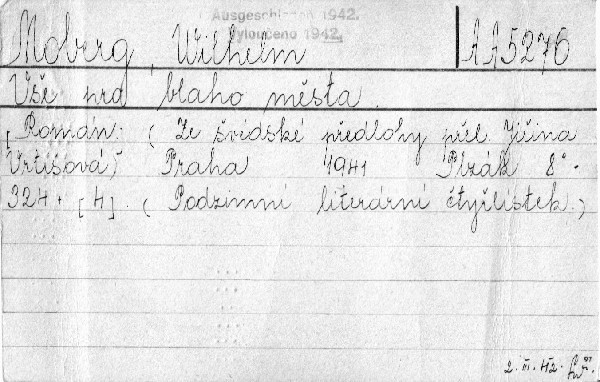 Ausgeschieden 1942.
Vyloučeno 1942.
Moberg, Wilhelm AA5276
Vše pro blaho města.
[Román. (Ze švédské předlohy přel. Jiřina
Vrtišová) Praha 1941 Plzák 8°.
324 + [4]. (Podzimní literární čtyřlístek.)
2. III. 42.